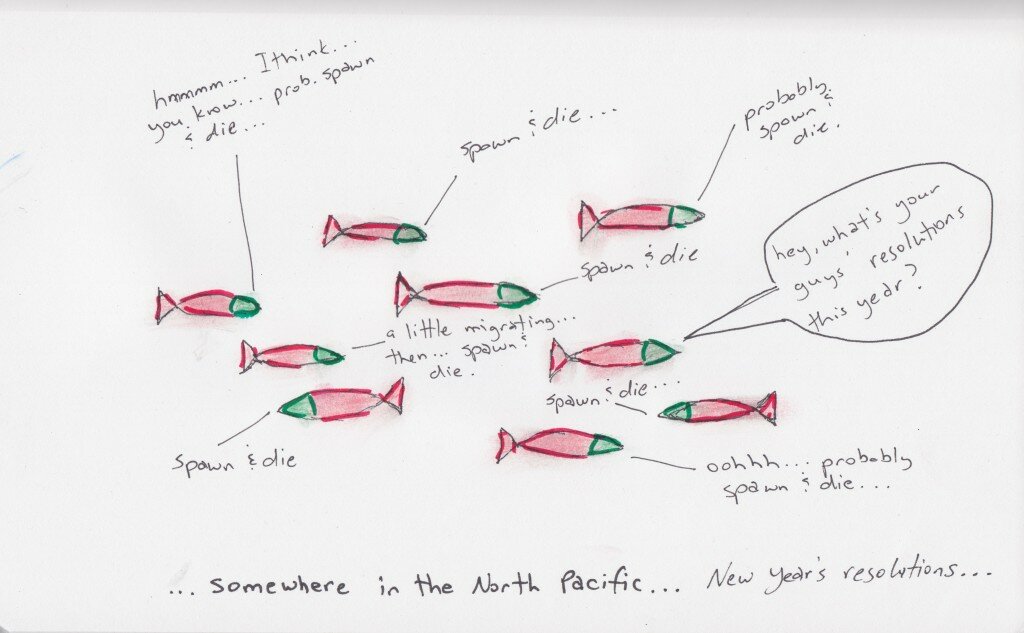 hmmmm... I think...
you know... prob. spawn
& die...
spawn & die...
probably
spawn &
die.
hey, what's your
guys' resolutions
this year?
spawn & die
a little migrating...
then... spawn &
die.
spawn & die...
spawn & die
oohhh... probably
spawn & die...
... somewhere in the North Pacific... New Year's resolutions...